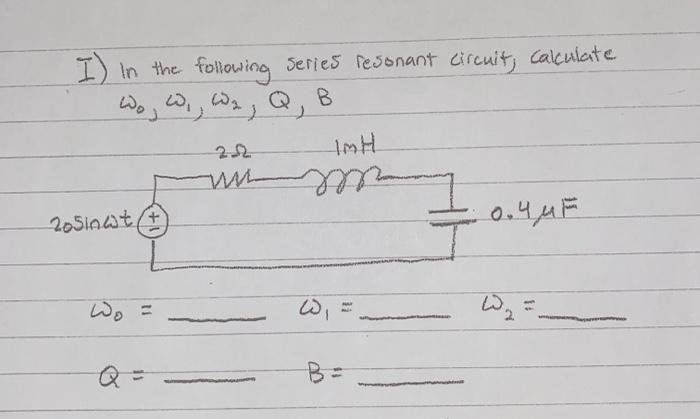 I) In the following series resonant circuit, calculate
ω₀, ω₁, ω₂, Q, B
2Ω 1mH
20sinωt + - 0.4μF
ω₀ = ω₁ = ω₂ =
Q = B =